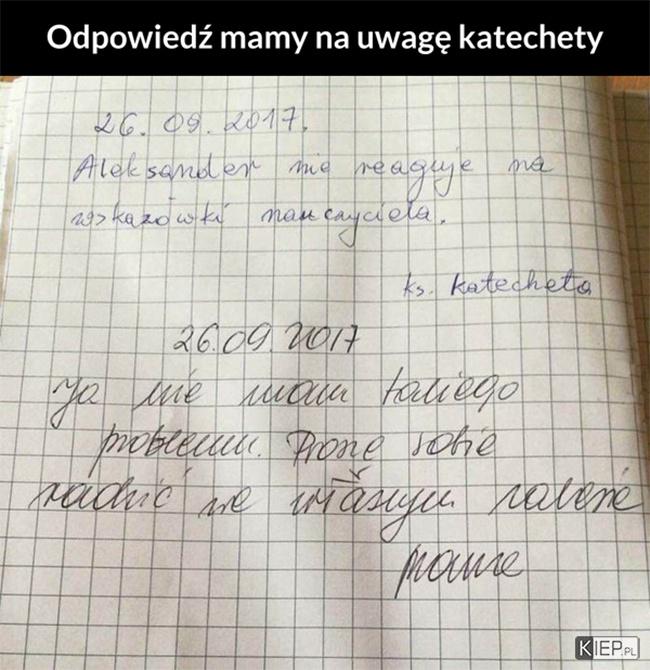 Odpowiedź mamy na uwagę katechety
26. 09. 2017.
Aleksander nie reaguje na
wskazówki nauczyciela.
ks. katecheta
26.09.2017
Ja nie mam takiego
problemu. Proszę sobie
radzić we własnym zakresie
KIEP.PL